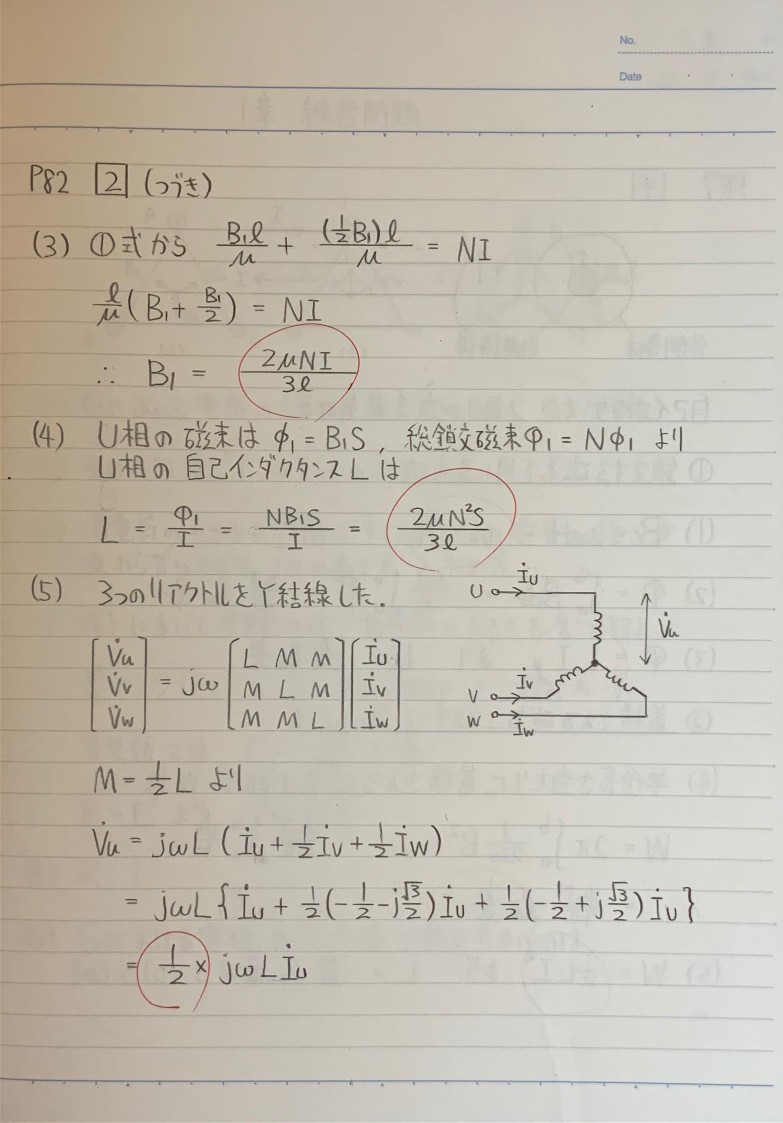 No.
Date
P82 [2] (つづき)
(3) ①式から B₁ℓ/μ + (½B₁)ℓ/μ = NI
ℓ/μ (B₁ + B₁/2) = NI
∴ B₁ = 2μNI/3ℓ
(4) U相の磁束は φ₁ = B₁S, 総鎖交磁束Φ₁ = Nφ₁ より
U相の自己インダクタンスLは
L = Φ₁/I = NB₁S/I = 2μN²S/3ℓ
(5) 3つのリアクトルをY結線した.
U İu V̇u
V İv
W İw
[V̇u V̇v V̇w] = jω [L M M M L M M M L] [İu İv İw]
M = ½L より
V̇u = jωL (İu + ½İv + ½İw)
= jωL{İu + ½(-½ - j√3/2)İu + ½(-½ + j√3/2)İu}
= ½ × jωLİu